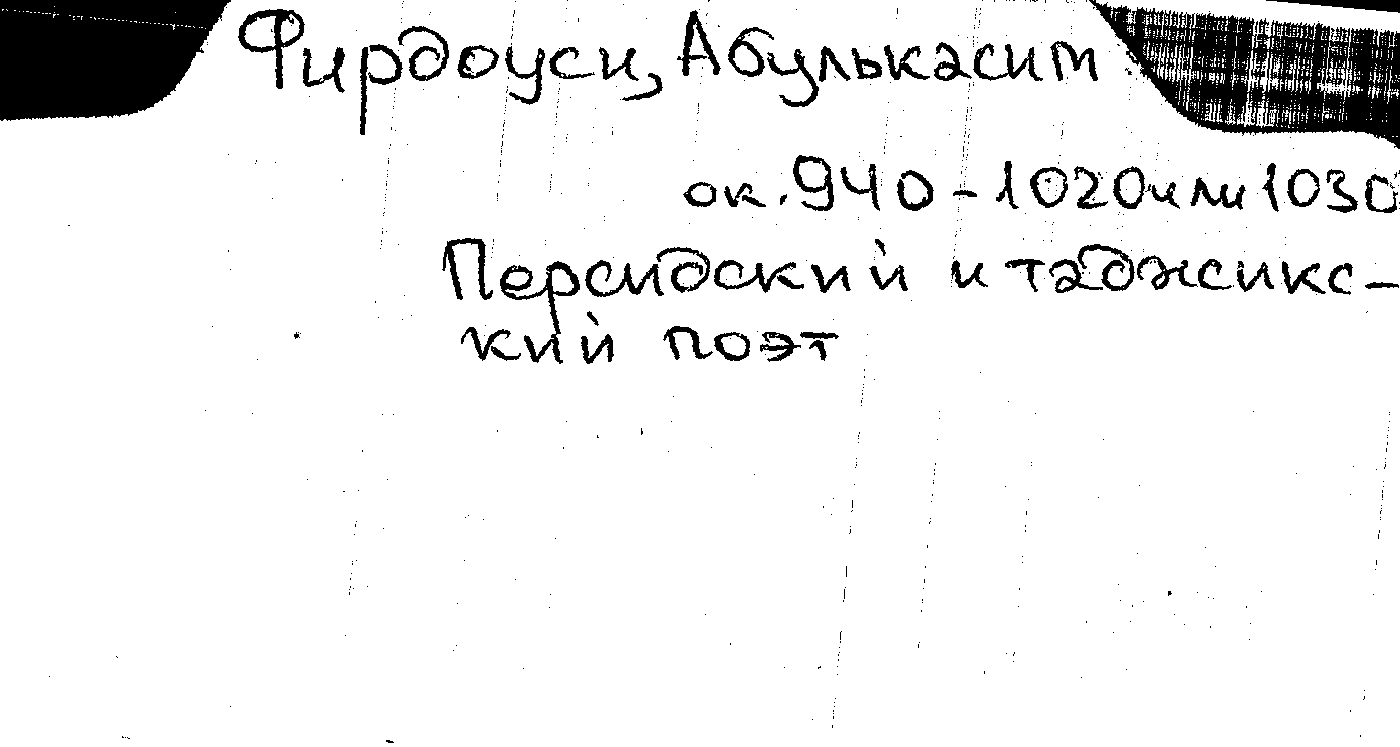 Фирдоуси, Абулькасим
ок. 940 - 1020 или 1030
Персидский и таджикс-
кий поэт